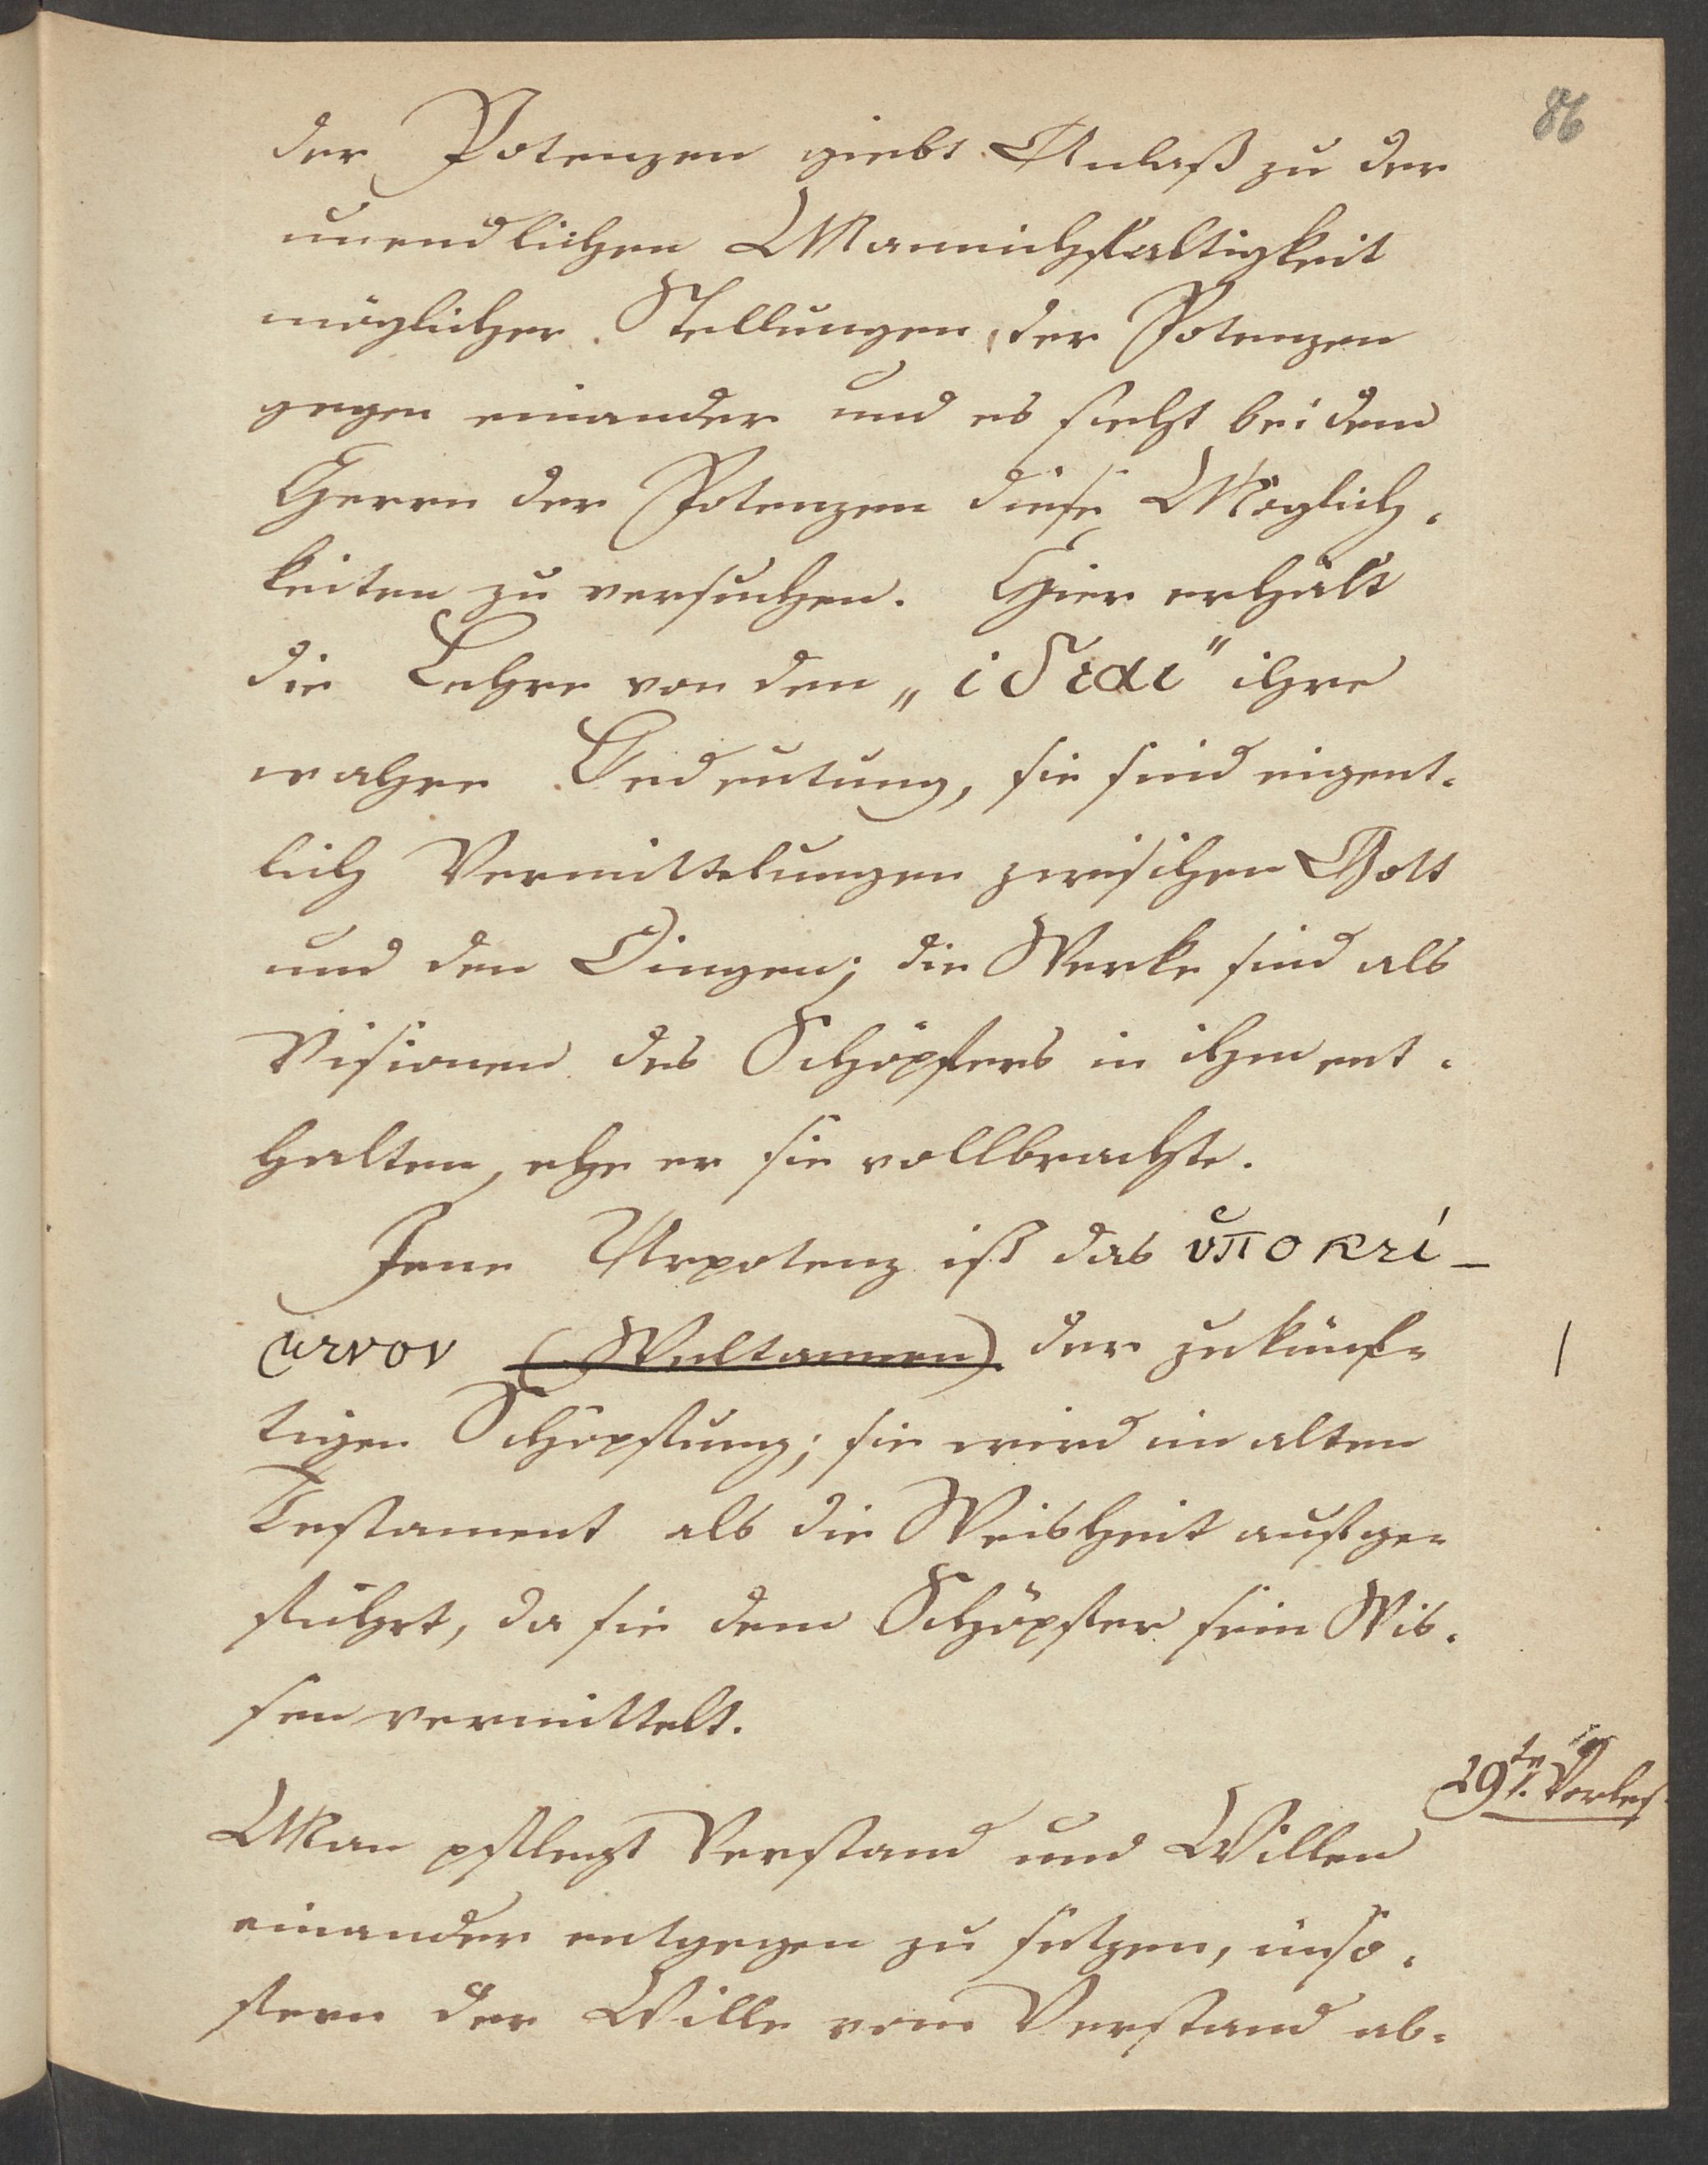 86
der Potenzen giebt Anlaß zu der
unendlichen Mannichfaltigkeit
möglicher Stellungen der Potenzen
gegen einander und es steht bei dem
Herrn der Potenzen diese Möglich-
keiten zu versuchen. Hier erhält
die Lehre von den „ἰδεαι" ihre
wahre Bedeutung, sie sind eigent-
lich Vermittelungen zwischen Gott
und den Dingen; die Werke sind als
Visionen des Schöpfers in ihm ent-
halten, ehe er sie vollbrachte.
Jene Urpotenz ist das ὑποκεί-
μενον (Weltammen) der zukünf-
tigen Schöpfung; sie wird im alten
Testament als die Weisheit aufge-
führt, da sie dem Schöpfer sein Wis-
sen vermittelt.
29te Vorles.
Man pflegt Verstand und Willen
einander entgegen zu setzen, inso-
fern der Wille vom Verstand ab-